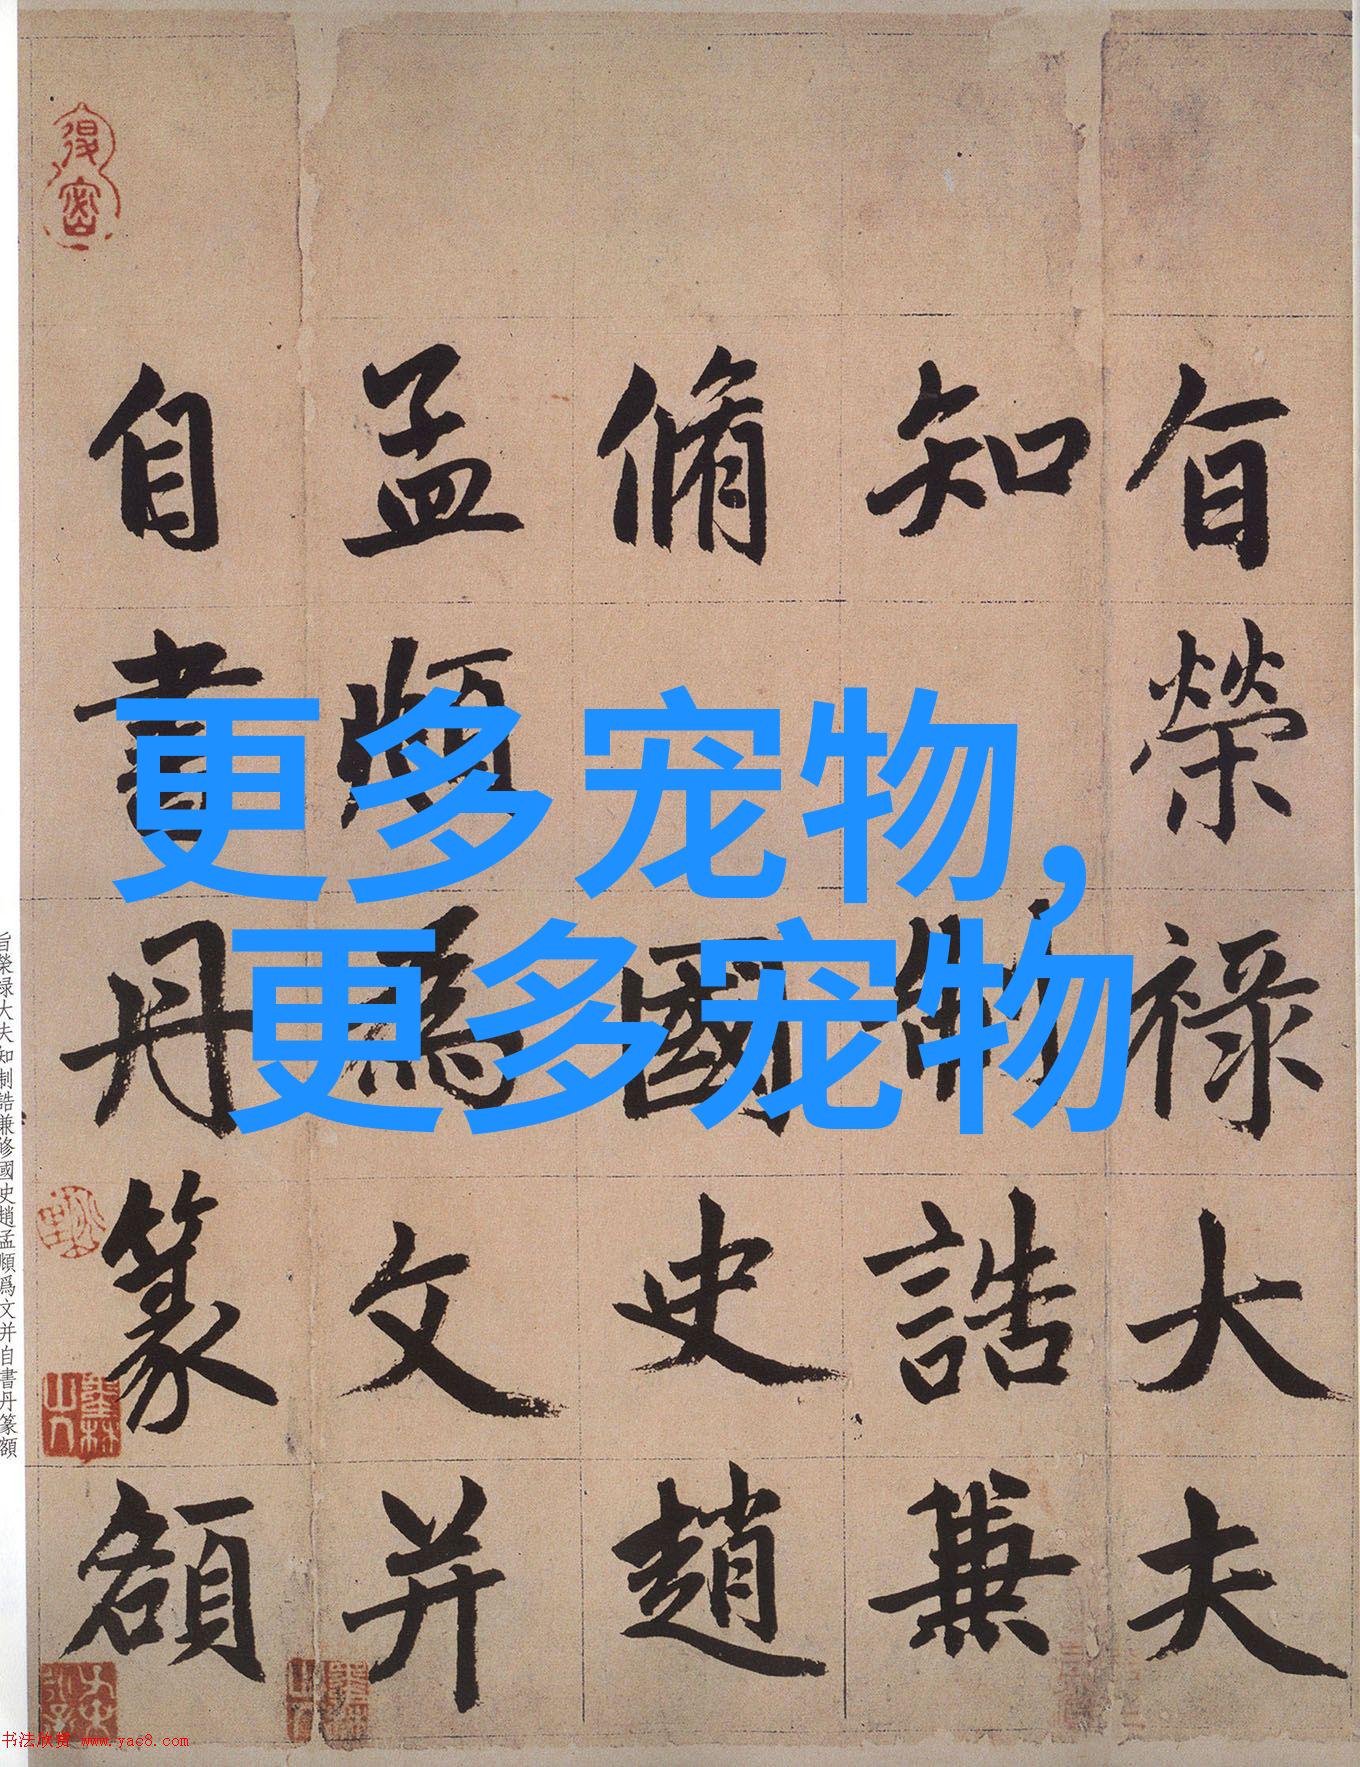 更多宠物,
更多宠物
旨榮祿大夫
知制誥兼
脩國史趙
孟頫為文并
自書丹篆額
旨榮禄大夫知制誥兼修國史趙孟頫爲文并自書丹篆額
书法欣赏 www.yac8.com